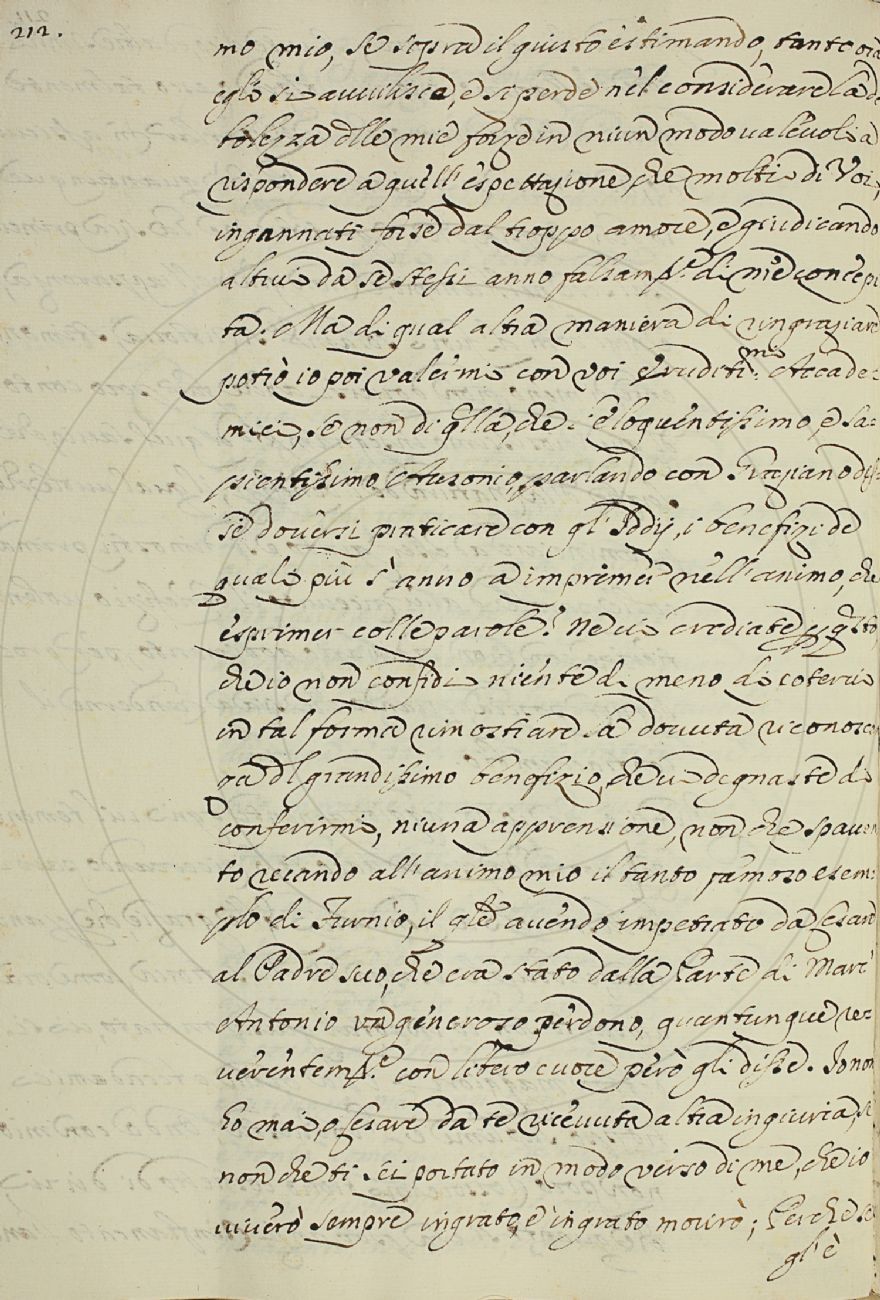 212.
mo mio, se sopra il giusto estimando, tanto ora
egli si avvilisce, e si perde nel considerare la de
bolezza dlle mie forze in niun modo valevoli a
rispondere a quell' espettazione, che molti di Voi,
ingannati forse dal troppo amore, e giudicando
altrui da se stessi anno falsam.te di me concepi
ta. Ma di qual altra maniera di ringraziare
potrò io poi valermi con voi Eruditi.mi Accade:
mici, se non di qlla, che l' eloquentissimo, e sa:
pientissimo Ausonio, parlando con Graziano dis:
se doversi praticare con gl' Iddij, i benefizi de
quali più s' anno a imprimer nell' animo, che
esprimer colle parole? Ne vi crediate p qsto,
che io non confidi niente di meno di potervi
in tal forma rimostrare la dovuta riconoscen
za dl grandissimo benefizio, che vi degnaste di
conferirmi, niuna apprensione, non che spaven
to recando all' animo mio il tanto famoso esem:
plo di Furnio, il qle avendo impetrato da Cesare
al Padre suo, che era stato dalla Parte di Marc'
Antonio un generoso perdono, quantunque re:
verentem.te con libero cuore però gli disse. Io non
ho mai, o Cesare da te ricevuta altra ingiuria, se
non che ti sei portato in modo verso di me, che io
viverò sempre ingrato, e ingrato morirò; Perche se
gl' è